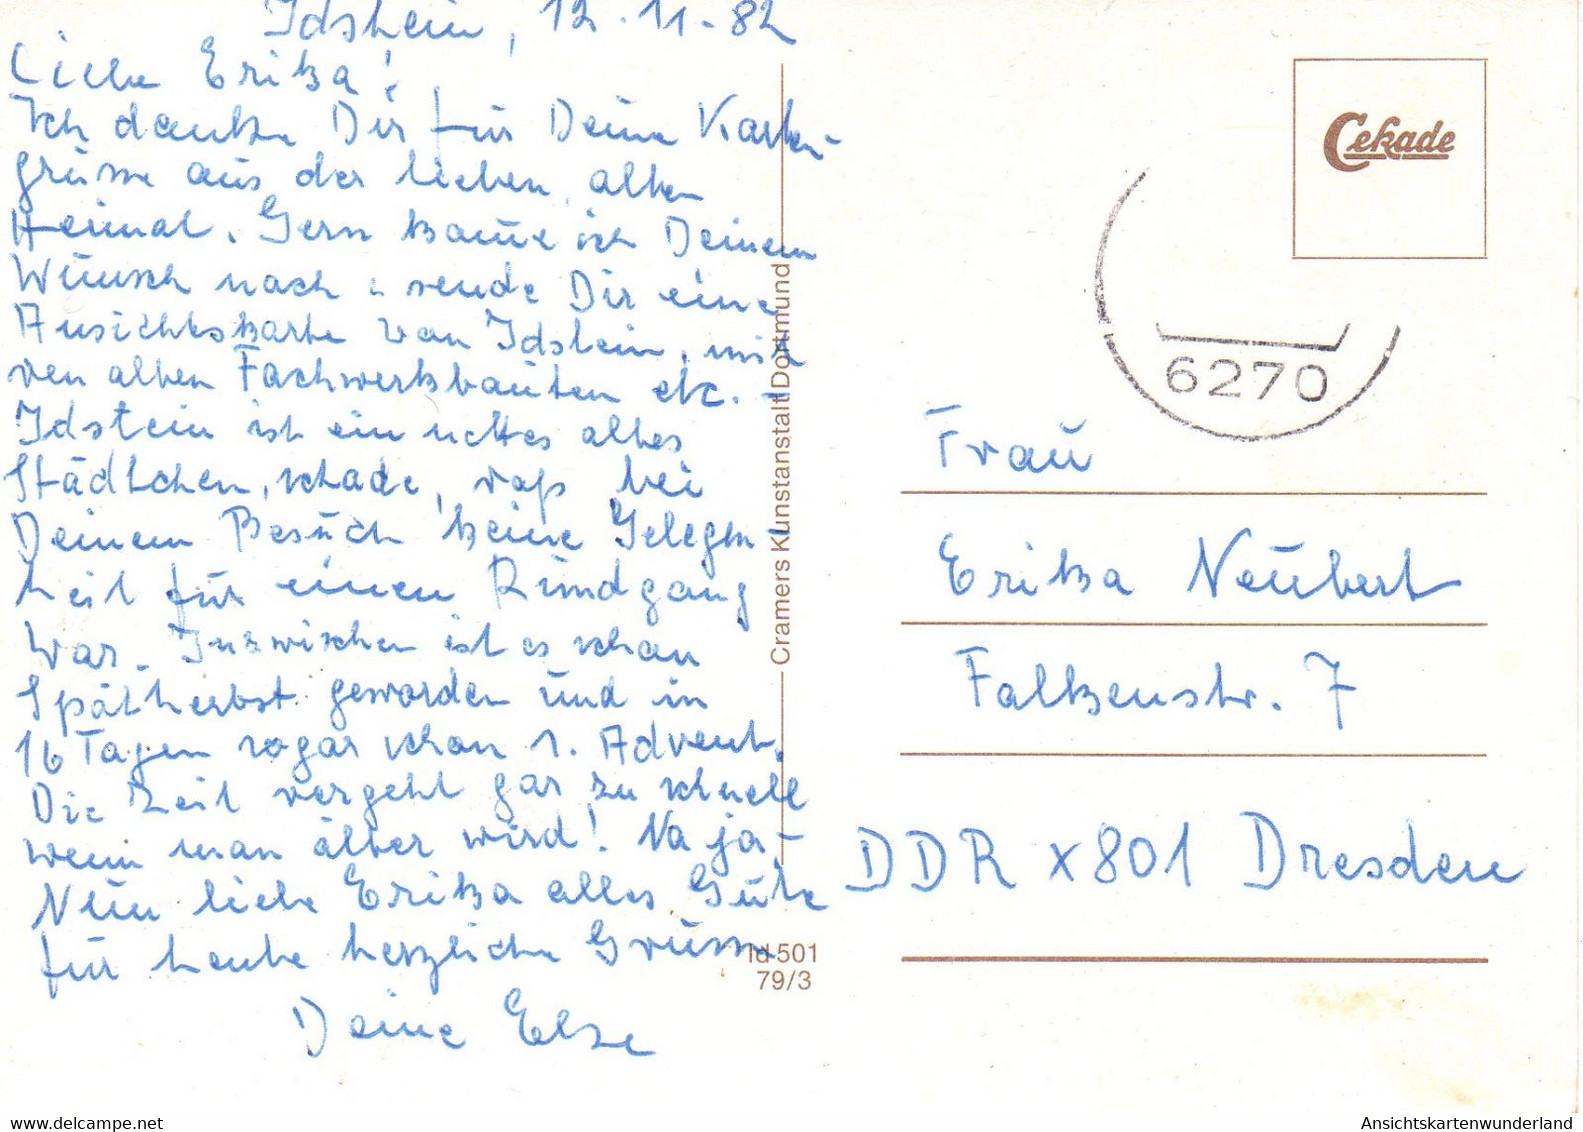 Idstein, 12.11.82
Liebe Erika!
Ich danke Dir für Deine Karten-
grüsse aus der lieben alten
Heimat. Gern komme ich Deinem
Wunsch nach u. sende Dir eine
Ansichtskarte von Idstein, mit
den alten Fachwerkbauten etc. -
Idstein ist ein nettes altes
Städtchen, schade, daß bei
Deinem Besuch keine Gelegen-
heit für einen Rundgang
war. Inzwischen ist es schon
Spätherbst geworden und in
16 Tagen sogar schon 1. Advent.
Die Zeit vergeht gar zu schnell
wenn man älter wird! Na ja -
Nun liebe Erika alles Gute
für heute herzliche Grüsse
Deine Else
Cramers Kunstanstalt Dortmund
Id 501
79/3
Cekade
6270
Frau
Erika Neubert
Falkenstr. 7
DDR x 801 Dresden
delcampe.net
Ansichtskartenwunderland